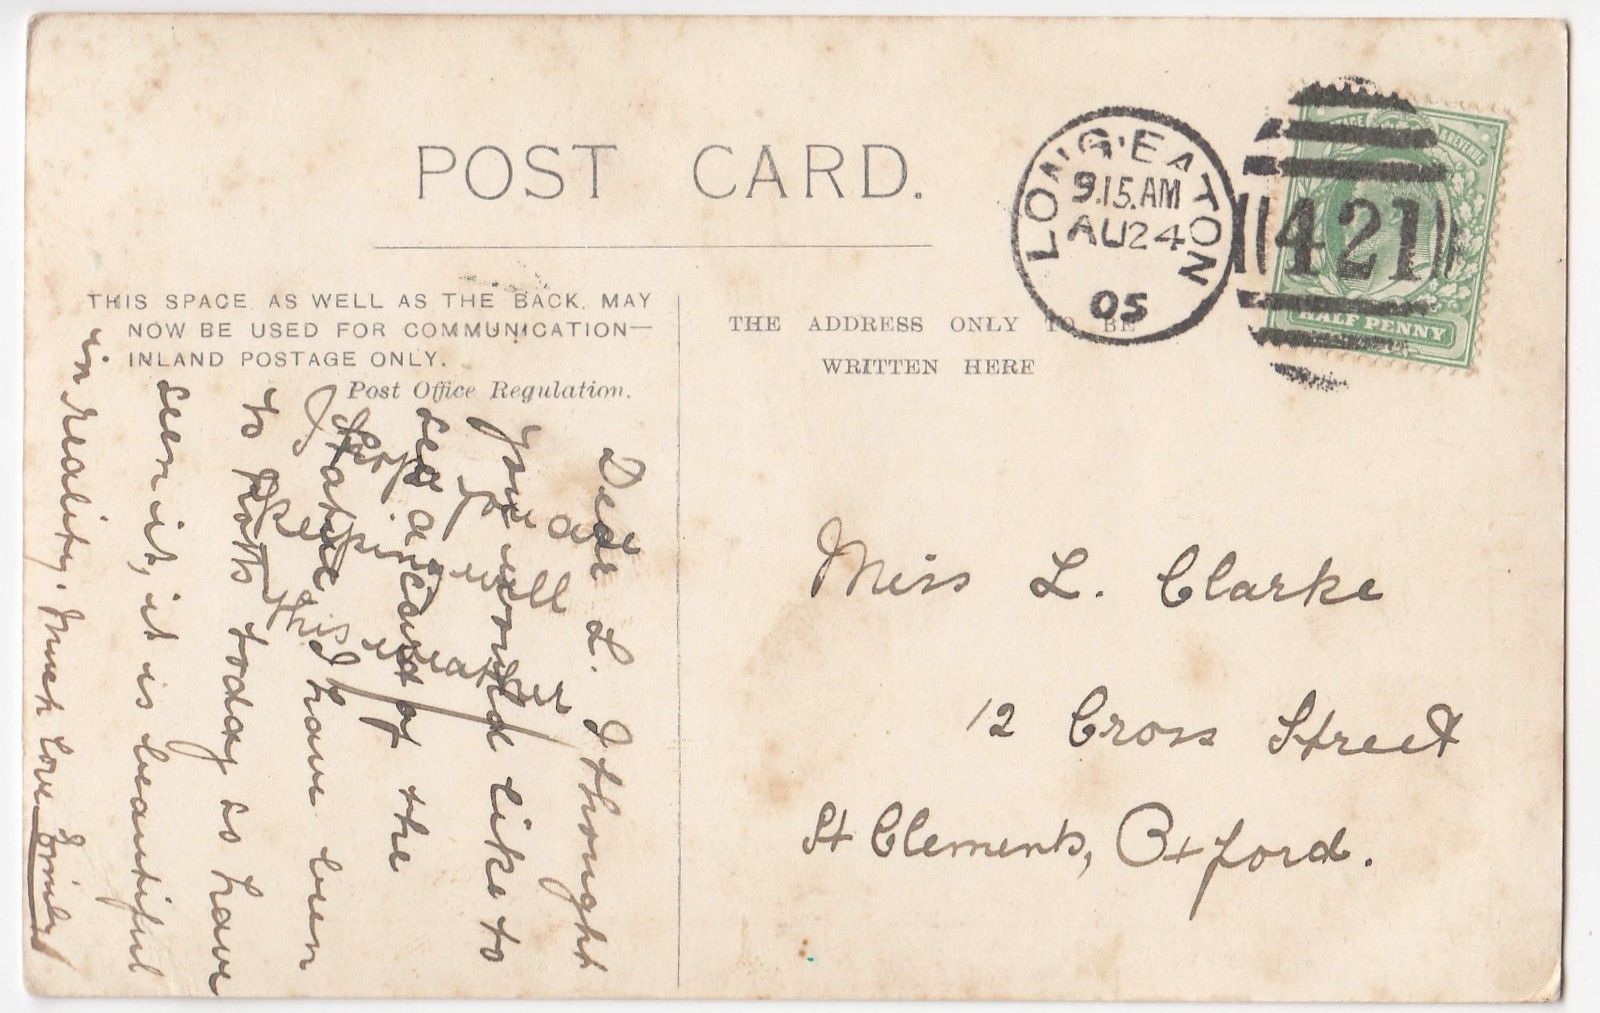 POST CARD.
THIS SPACE, AS WELL AS THE BACK, MAY
NOW BE USED FOR COMMUNICATION—
INLAND POSTAGE ONLY.
Post Office Regulation.
THE ADDRESS ONLY TO BE
WRITTEN HERE
LONG·EATON
9.15.AM
AU24
05
421
POSTAGE & REVENUE
HALF PENNY
Dear L. I thought
you would like to
see a card of the
Statue I have been
to Notts today so have
seen it, it is beautiful
in reality. Much love Emily
I hope you are
keeping well
this weather
Miss L. Clarke
12 Cross Street
St Clements, Oxford.